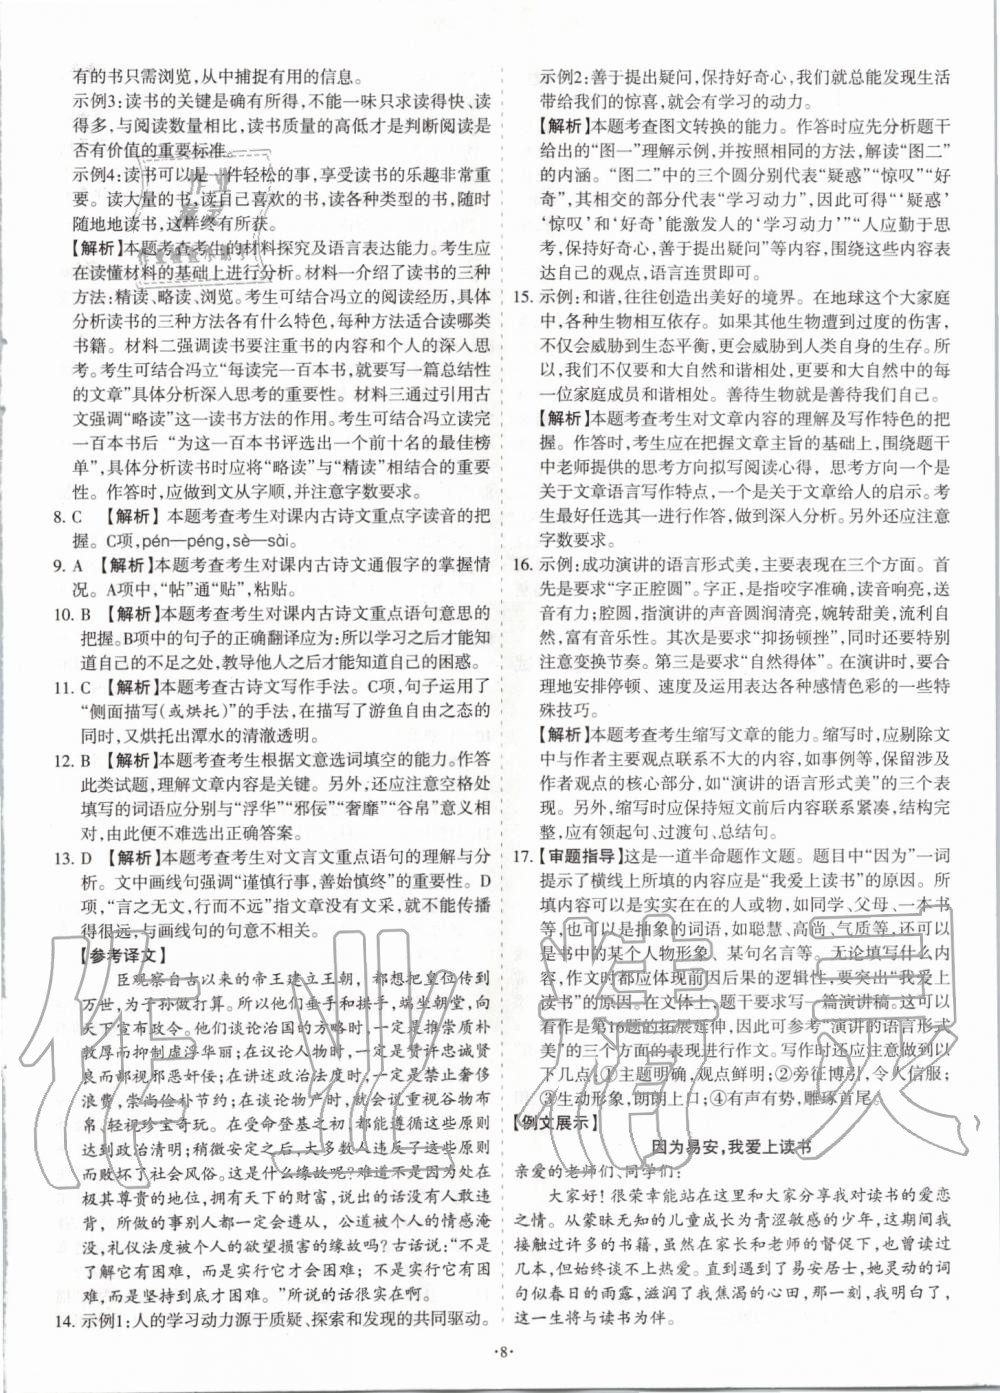 有的书只需浏览,从中捕捉有用的信息。
示例3:读书的关键是确有所得,不能一味只求读得快、读
得多,与阅读数量相比,读书质量的高低才是判断阅读是
否有价值的重要标准。
示例4:读书可以是一件轻松的事,享受读书的乐趣非常重
要。读大量的书,读自己喜欢的书,读各种类型的书,随时
随地地读书,这样终有所获。
【解析】本题考查考生的材料探究及语言表达能力。考生应
在读懂材料的基础上进行分析。材料一介绍了读书的三种
方法:精读、略读、浏览。考生可结合冯立的阅读经历,具体
分析读书的三种方法各有什么特色,每种方法适合读哪类
书籍。材料二强调读书要注重书的内容和个人的深入思
考。考生可结合冯立“每读完一百本书,就要写一篇总结性
的文章”具体分析深入思考的重要性。材料三通过引用古
文强调“略读”这一读书方法的作用。考生可结合冯立读完
一百本书后“为这一百本书评选出一个前十名的最佳榜
单”,具体分析读书时应将“略读”与“精读”相结合的重要
性。作答时,应做到文从字顺,并注意字数要求。
8. C 【解析】本题考查考生对课内古诗文重点字读音的把
握。C项,pén—péng,sè—sài。
9. A 【解析】本题考查考生对课内古诗文通假字的掌握情
况。A项中,“帖”通“贴”,粘贴。
10. B 【解析】本题考查考生对课内古诗文重点语句意思的
把握。B项中的句子的正确翻译应为:所以学习之后才能知
道自己的不足之处,教导他人之后才能知道自己的困惑。
11. C 【解析】本题考查古诗文写作手法。C项,句子运用了
“侧面描写(或烘托)”的手法,在描写了游鱼自由之态的
同时,又烘托出潭水的清澈透明。
12. B 【解析】本题考查考生根据文意选词填空的能力。作答
此类试题,理解文章内容是关键。另外,还应注意空格处
填写的词语应分别与“浮华”“邪佞”“奢靡”“谷帛”意义相
对,由此便不难选出正确答案。
13. D 【解析】本题考查考生对文言文重点语句的理解与分
析。文中画线句强调“谨慎行事,善始慎终”的重要性。D
项,“言之无文,行而不远”指文章没有文采,就不能传播
得很远,与画线句的句意不相关。
【参考译文】
臣观察自古以来的帝王建立王朝,都想把皇位传到
万世,为子孙做打算。所以他们垂手和拱手,端坐朝堂,向
天下宣布政令。他们谈论治国的方略时,一定是推崇质朴
敦厚而抑制虚浮华丽;在议论人物时,一定是赞许忠诚贤
良而鄙视邪恶奸佞;在讲述政治法度时,一定是禁止奢侈
浪费,崇尚俭朴节约;在谈论物产时,一定是重视粮食布
帛,轻视珍宝奇玩。在受命登基之初,都能遵循这些原则
达到政治清明;稍微安定之后,大多数人违反了这些原则
而败坏了社会风俗。这是什么缘故呢?难道不是因为处在
极其尊贵的地位,拥有天下的财富,说出的话没有人敢违
背,所做的事别人都一定会遵从,公道被个人的情感淹
没,礼仪法度被个人的欲望损害的缘故吗?古话说:“不是
了解它有困难,而是实行它才有困难;不是实行它有困
难,而是坚持到底才困难。”所说的话很实在啊。
14. 示例1:人的学习动力源于质疑、探索和发现的共同驱动。
示例2:善于提出疑问,保持好奇心,我们就总能发现生活
带给我们的惊喜,就会有学习的动力。
【解析】本题考查图文转换的能力。作答时应先分析题干
给出的“图一”理解示例,并按照相同的方法,解读“图二”
的内涵。“图二”中的三个圆分别代表“疑惑”“惊叹”“好
奇”,其相交的部分代表“学习动力”,因此可得出“‘疑惑’
‘惊叹’和‘好奇’能激发人的‘学习动力’”“人应勤于思
考,保持好奇心,善于提出疑问”等内容,围绕这些内容表
达自己的观点,语言连贯即可。
15. 示例:和谐,往往创造出美好的境界。在地球这个大家庭
中,各种生物相互依存。如果其他生物遭到过度的伤害,
不仅会威胁到生态平衡,更会威胁到人类自身的生存。所
以,我们不仅要和大自然和谐相处,更要和大自然中的每
一位家庭成员和谐相处。善待生物就是善待我们自己。
【解析】本题考查考生对文章内容的理解及写作特色的把
握。作答时,考生应在把握文章主旨的基础上,围绕题干
中老师提供的思考方向拟写阅读心得,思考方向一个是
关于文章语言写作特点,一个是关于文章给人的启示。考
生最好任选其一进行作答,做到深入分析。另外还应注意
字数要求。
16. 示例:成功演讲的语言形式美,主要表现在三个方面。首
先是要求“字正腔圆”。字正,是指咬字准确,读音响亮,送
音有力;腔圆,指演讲的声音圆润清亮,婉转甜美,流利自
然,富有音乐性。其次是要求“抑扬顿挫”,同时还要特别
注意变换节奏。第三是要求“自然得体”。在演讲时,要合
理地安排停顿、速度及运用表达各种感情色彩的一些特
殊技巧。
【解析】本题考查考生缩写文章的能力。缩写时,应剔除文
中与作者主要观点关系不大的内容,如事例等,保留涉及
作者观点的核心部分,如“演讲的语言形式美”的三个表
现。另外,缩写时应保持短文前后内容联系紧凑,结构合
理,应有领起句、过渡句、总结句。
17. 【审题指导】这是一道半命题作文题。题目中“因为”一词
提示了横线上所填的内容应是“我爱上读书”的原因。所
填内容可以是实实在在的人或物,如同学、父母、一本书
等,也可以是抽象的词语,如聪慧、高尚、气质等,还可以
是书中的某个人物形象、某句名言等。无论填写什么内
容,作文时都应体现前因后果的逻辑性,要突出“我爱上
读书”的原因。在文体上,题干要求写一篇演讲稿,这可以
看作是第16题的拓展延伸,因此可参考“演讲的语言形式
美”的三个方面的表现进行作文。写作时还应注意做到以
下几点:①主题明确,观点鲜明;②旁征博引,令人信服;
③生动形象,朗朗上口;④有声有势,雕琢首尾。
【例文展示】
因为易安,我爱上读书
亲爱的老师们、同学们:
大家好!很荣幸能站在这里和大家分享我对读书的爱恋
之情。从蒙昧无知的儿童成长为青涩敏感的少年,这期间我
接触过许多的书籍,虽然在家长和老师的督促下,也曾读过
几本,但始终谈不上热爱。直到遇到了易安居士,她灵动的词
句似春日的雨露,滋润了我焦渴的心田,那一刻,我明白了,
这一生将与读书为伴。
·8·
作业精灵